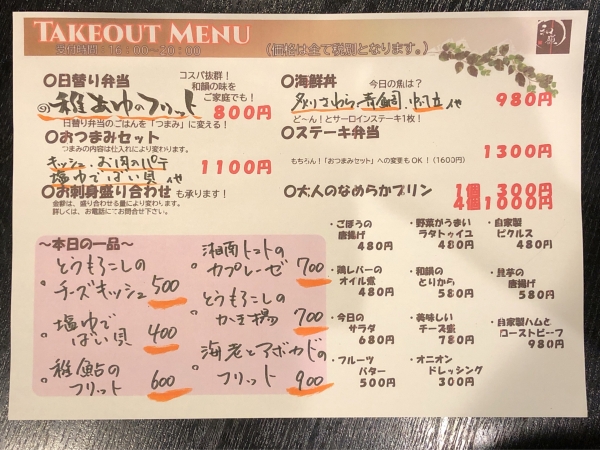 TAKEOUT MENU
受付時間：16：00～20：00
（価格は全て税別となります。）
○日替り弁当
コスパ抜群！
和韻の味を
ご家庭でも！
稚あゆのフリット
800円
日替り弁当のごはんを「つまみ」に変える！
○おつまみセット
つまみの内容は仕入れにより変わります。
キッシュ・お肉のパテ
塩ゆでばい貝 他
1100円
○お刺身盛り合わせも承ります！
金額は、盛り合わせる量により変わります。
詳しくは、お電話にてお問合せ下さい。
○海鮮丼
今日の魚は？
炙りさわら・青鯛・帆立 他
980円
ど～ん！とサーロインステーキ1枚！
○ステーキ弁当
1300円
もちろん！「おつまみセット」への変更もOK！（1600円）
○大人のなめらかプリン
1個 300円
4個1000円
～本日の一品～
・とうもろこしの
チーズキッシュ 500
・塩ゆで
ばい貝 400
・稚鮎の
フリット 600
・湘南トマトの
カプレーゼ 700
・とうもろこしの
かき揚 700
・海老とアボカドの
フリット 900
・ごぼうの
唐揚げ
480円
・野菜がうまい
ラタトゥイユ
480円
・自家製
ピクルス
480円
・鶏レバーの
オイル煮
480円
・和韻の
とりから
580円
・里芋の
唐揚げ
580円
・今日の
サラダ
680円
・美味しい
チーズ
780円
・自家製ハムと
ローストビーフ
980円
・フルーツ
バター
500円
・オニオン
ドレッシング
300円